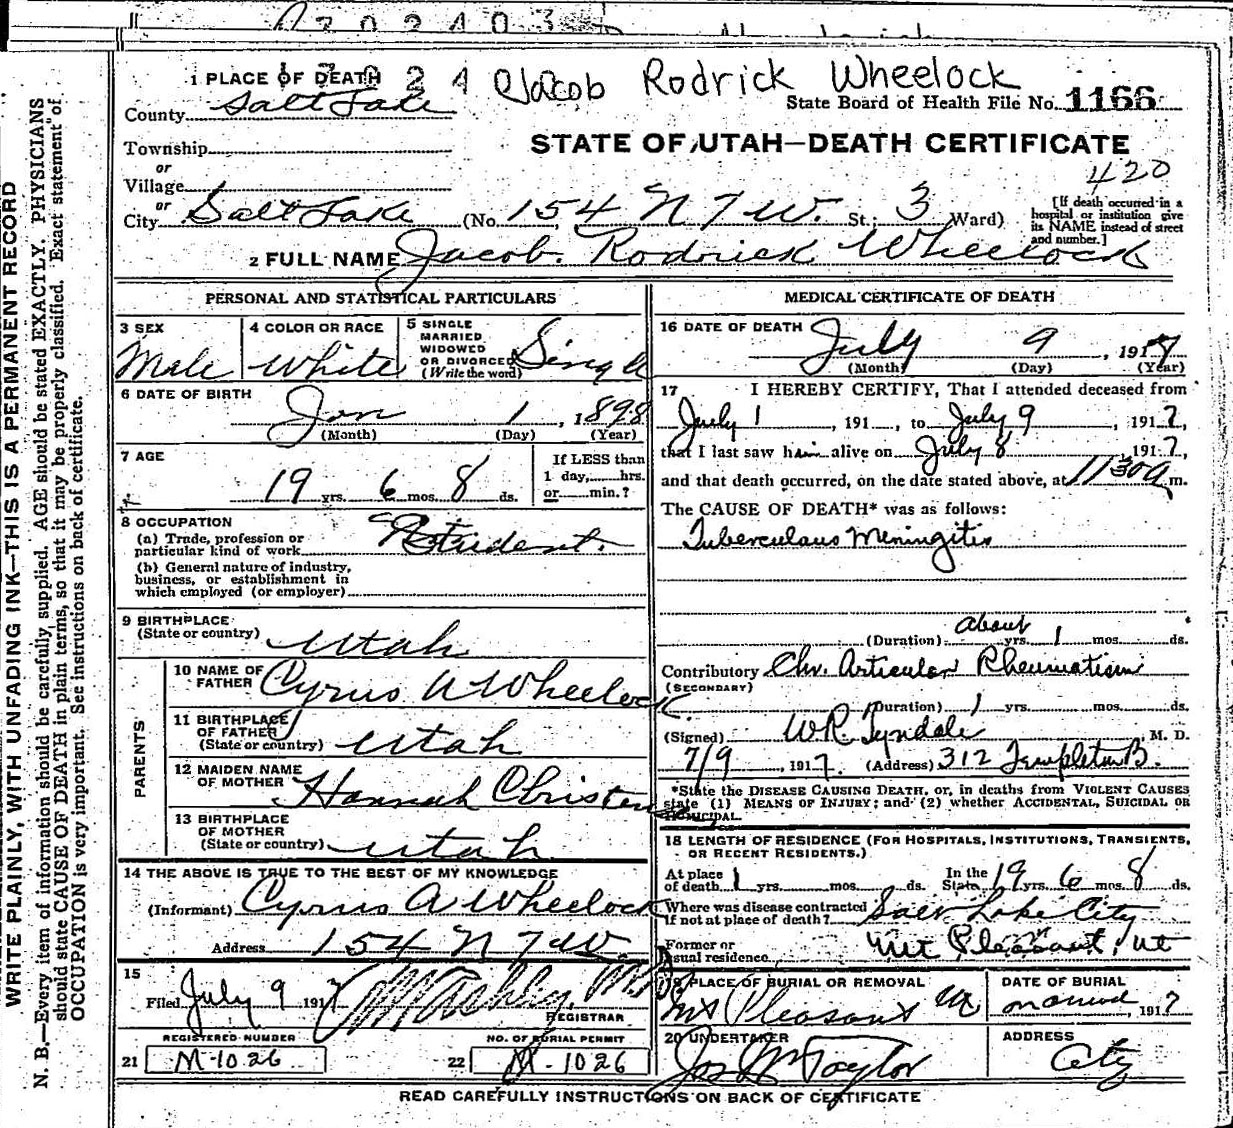 17024 Jacob Rodrick Wheelock
1 PLACE OF DEATH
County Salt Lake
State Board of Health File No. 1166
Township
STATE OF UTAH—DEATH CERTIFICATE
or
Village
420
or
City Salt Lake (No. 154 N 7 W. St.; 3 Ward)
[If death occurred in a hospital or institution give its NAME instead of street and number.]
2 FULL NAME Jacob. Rodrick Wheelock
PERSONAL AND STATISTICAL PARTICULARS
3 SEX Male
4 COLOR OR RACE White
5 SINGLE MARRIED WIDOWED OR DIVORCED (Write the word) Single
6 DATE OF BIRTH
Jan 1, 1898
(Month) (Day) (Year)
7 AGE
19 yrs. 6 mos. 8 ds.
If LESS than 1 day, hrs. or min.?
8 OCCUPATION
(a) Trade, profession or particular kind of work Student.
(b) General nature of industry, business, or establishment in which employed (or employer)
9 BIRTHPLACE
(State or country) Utah
PARENTS
10 NAME OF FATHER Cyrus A Wheelock
11 BIRTHPLACE OF FATHER (State or country) Utah
12 MAIDEN NAME OF MOTHER Hannah Christensen
13 BIRTHPLACE OF MOTHER (State or country) Utah
14 THE ABOVE IS TRUE TO THE BEST OF MY KNOWLEDGE
(Informant) Cyrus A Wheelock
Address 154 N 7 W.
15
Filed July 9 1917
REGISTRAR
REGISTERED NUMBER
21 M-1026
NO. OF BURIAL PERMIT
22 M-1026
MEDICAL CERTIFICATE OF DEATH
16 DATE OF DEATH July 9, 1917
(Month) (Day) (Year)
17 I HEREBY CERTIFY, That I attended deceased from
July 1, 191, to July 9, 1917,
that I last saw him alive on July 8 1917,
and that death occurred, on the date stated above, at 1130a m.
The CAUSE OF DEATH* was as follows:
Tuberculous Meningitis
(Duration) about yrs. 1 mos. ds.
Contributory Chr. Articular Rheumatism
(SECONDARY)
(Duration) 1 yrs. mos. ds.
(Signed) W.R. Tyndale M. D.
7/9, 1917. (Address) 312 Templeton B.
*State the DISEASE CAUSING DEATH, or, in deaths from VIOLENT CAUSES
state (1) MEANS OF INJURY; and (2) whether ACCIDENTAL, SUICIDAL OR
HOMICIDAL.
18 LENGTH OF RESIDENCE (FOR HOSPITALS, INSTITUTIONS, TRANSIENTS, OR RECENT RESIDENTS.)
At place of death 1 yrs. mos. ds. In the State 19 yrs. 6 mos. 8 ds.
Where was disease contracted if not at place of death? Salt Lake City
Former or usual residence Mt Pleasant, Ut
19 PLACE OF BURIAL OR REMOVAL
Mt Pleasant Ut
DATE OF BURIAL
, 1917
20 UNDERTAKER
Jos Wm Taylor
ADDRESS
City
READ CAREFULLY INSTRUCTIONS ON BACK OF CERTIFICATE
WRITE PLAINLY, WITH UNFADING INK—THIS IS A PERMANENT RECORD
N. B.—Every item of information should be carefully supplied. AGE should be stated EXACTLY. PHYSICIANS
should state CAUSE OF DEATH in plain terms, so that it may be properly classified. Exact statement of
OCCUPATION is very important. See instructions on back of certificate.